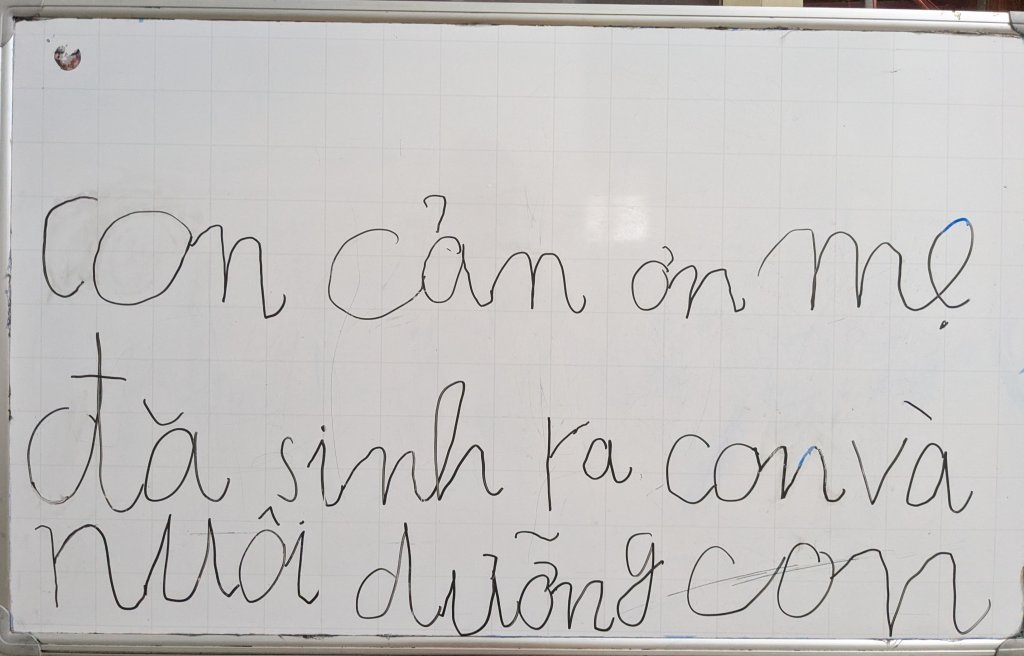 con cản ơn mẹ
đă sinh ra con và
nuôi dưỡng con